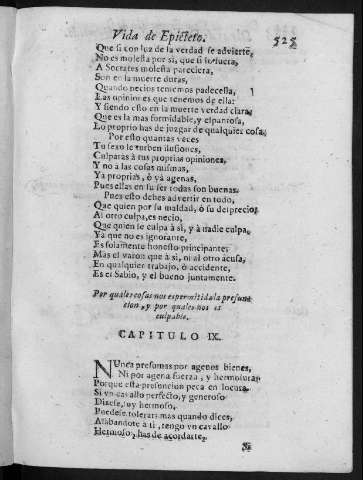 Vida de Epicteto.
525
Que si con luz de la verdad se advierte,
No es molesta por si, que si lo fuera,
A Socrates molesta pareciera,
Son en la muerte duras,
Quando necios tememos padecella,
Las opiniones que tenemos de ella:
Y siendo esto en la muerte verdad clara,
Que es la mas formidable, y espantosa,
Lo proprio has de juzgar de qualquier cosa.
Por esto quantas veces
Tu seso le turben ilusiones,
Culparàs à tus proprias opiniones,
Y no a las cosas mismas,
Ya proprias, ò yà agenas,
Pues ellas en su ser todas son buenas.
Pues esto debes advertir en todo,
Que quien por su maldad, ò su desprecio,
Al otro culpa, es necio,
Que quien se culpa à si, y à nadie culpa,
Ya que no es ignorante,
Es solamente honesto principante;
Mas el varon que à si, ni al otro acusa,
En qualquier trabajo, ò accidente,
Es el Sabio, y el bueno juntamente.
Por quales cosas nos es permitida la presun-
cion, y por quales nos es
culpable.
CAPITULO IX.
NUnca presumas por agenos bienes,
Ni por agena fuerza, y hermosura,
Porque esta presuncion peca en locura.
Si vn cavallo perfecto, y generoso
Dixese, soy hermoso,
Puedese tolerar: mas quando dices,
Alabandote à ti, tengo vn cavallo
Hermoso, has de acordarte,